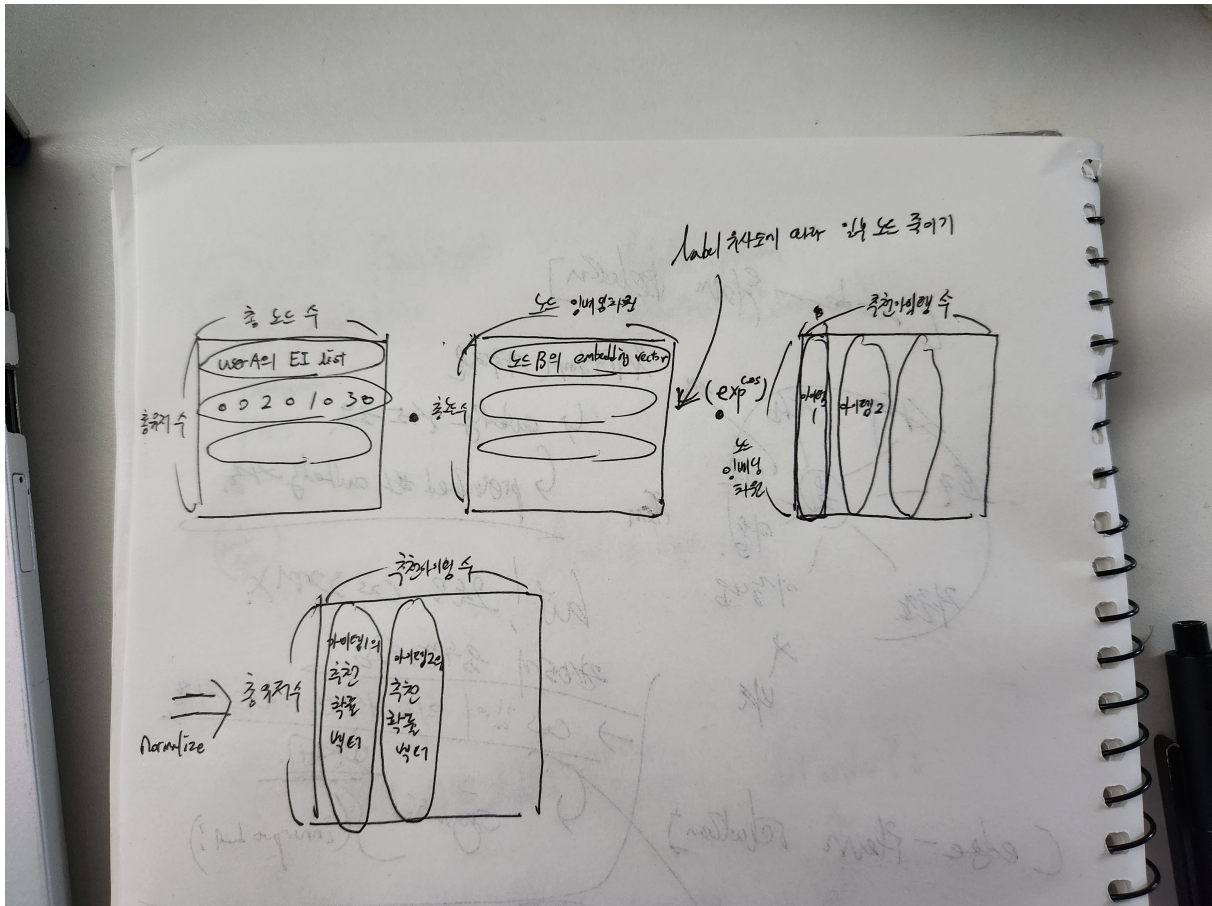 label 유사도에 따라 일부 노드 죽이기
총 노드 수
userA의 EI list
0 0 2 0 1 0 3 0
총유저 수
노드 임베딩차원
노드B의 embedding vector
총노드수
(exp^cos)
추천아이템 수
아이템
1
아이템2
노드
임베딩
차원
추천아이템 수
아이템1의
추천
확률
벡터
아이템2의
추천
확률
벡터
총유저수
Normalize